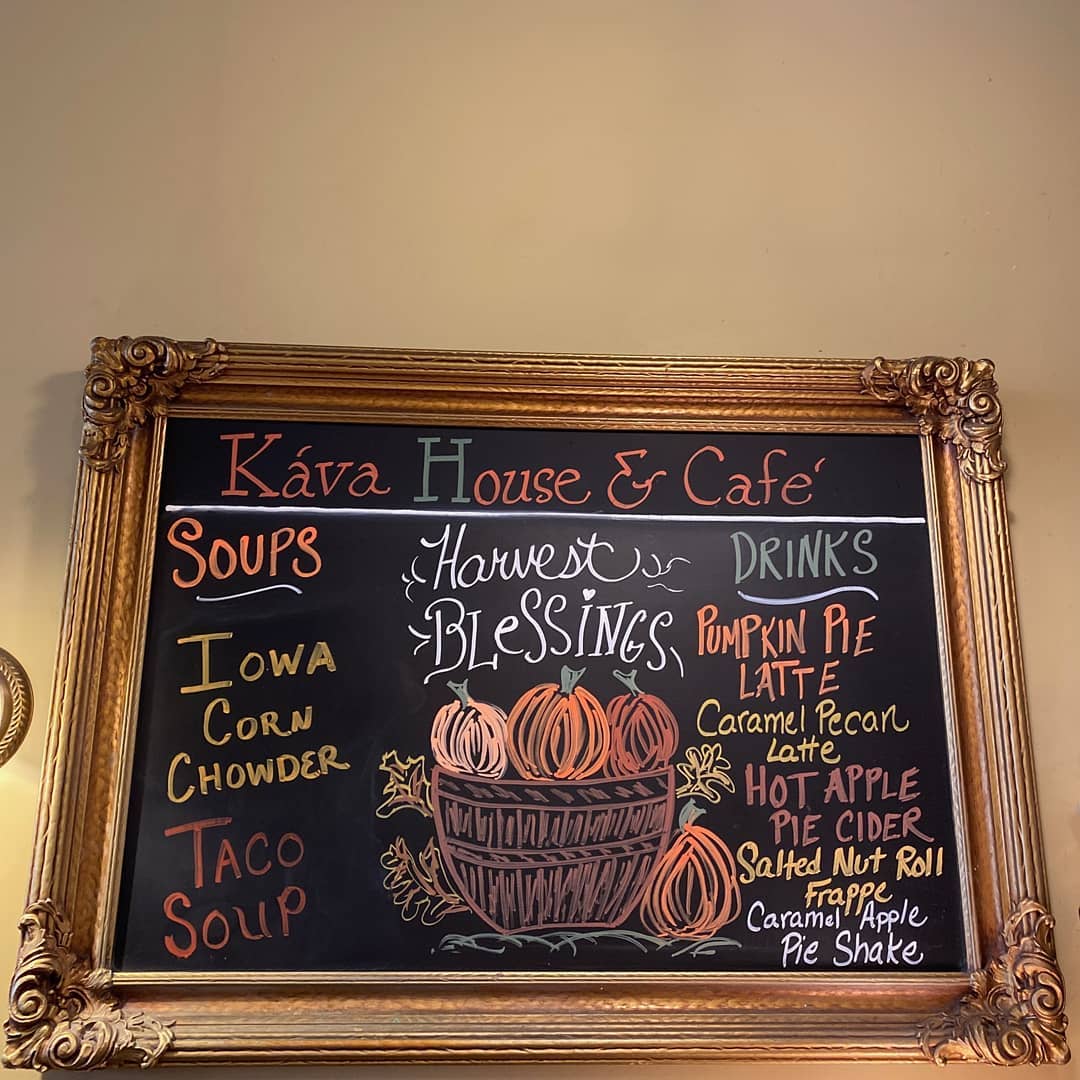 Káva House & Café
SOUPS
IOWA
CORN
CHOWDER
TACO
SOUP
Harvest
BLeSSiNGS
DRINKS
PUMPKIN PIE
LATTE
Caramel Pecan
Latte
HOT APPLE
PIE CIDER
Salted Nut Roll
Frappe
Caramel Apple
Pie Shake